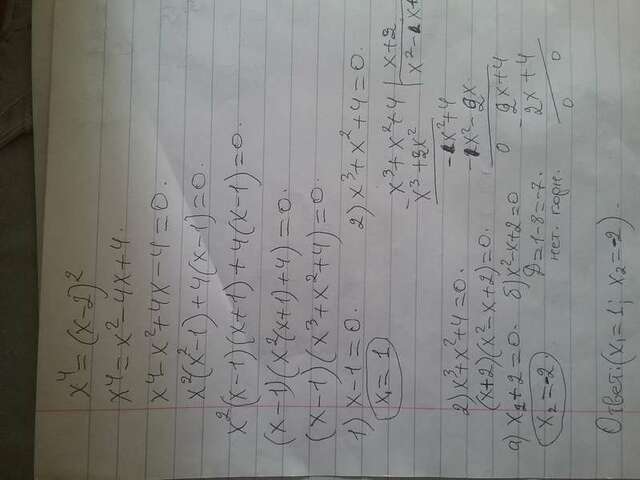 x⁴ = (x-2)²
x⁴ = x² - 4x + 4.
x⁴ - x² + 4x - 4 = 0.
x²(x² - 1) + 4(x - 1) = 0.
x²(x-1)(x+1) + 4(x-1) = 0.
(x-1)(x²(x+1)+4) = 0.
(x-1)(x³+x²+4) = 0.
1) x-1 = 0.
x₁ = 1
2) x³+x²+4 = 0.
x³+x²+4 | x+2
x³+2x² | x²-x+
-x²+4
-x²-2x
0 2x+4
2x+4
0 0
2) x³+x²+4 = 0.
(x+2)(x²-x+2) = 0.
а) x₂+2 = 0.
x₂ = -2.
б) x²-x+2 = 0
D = 1-8 = -7.
нет. корн.
Ответ: (x₁ = 1; x₂ = -2).